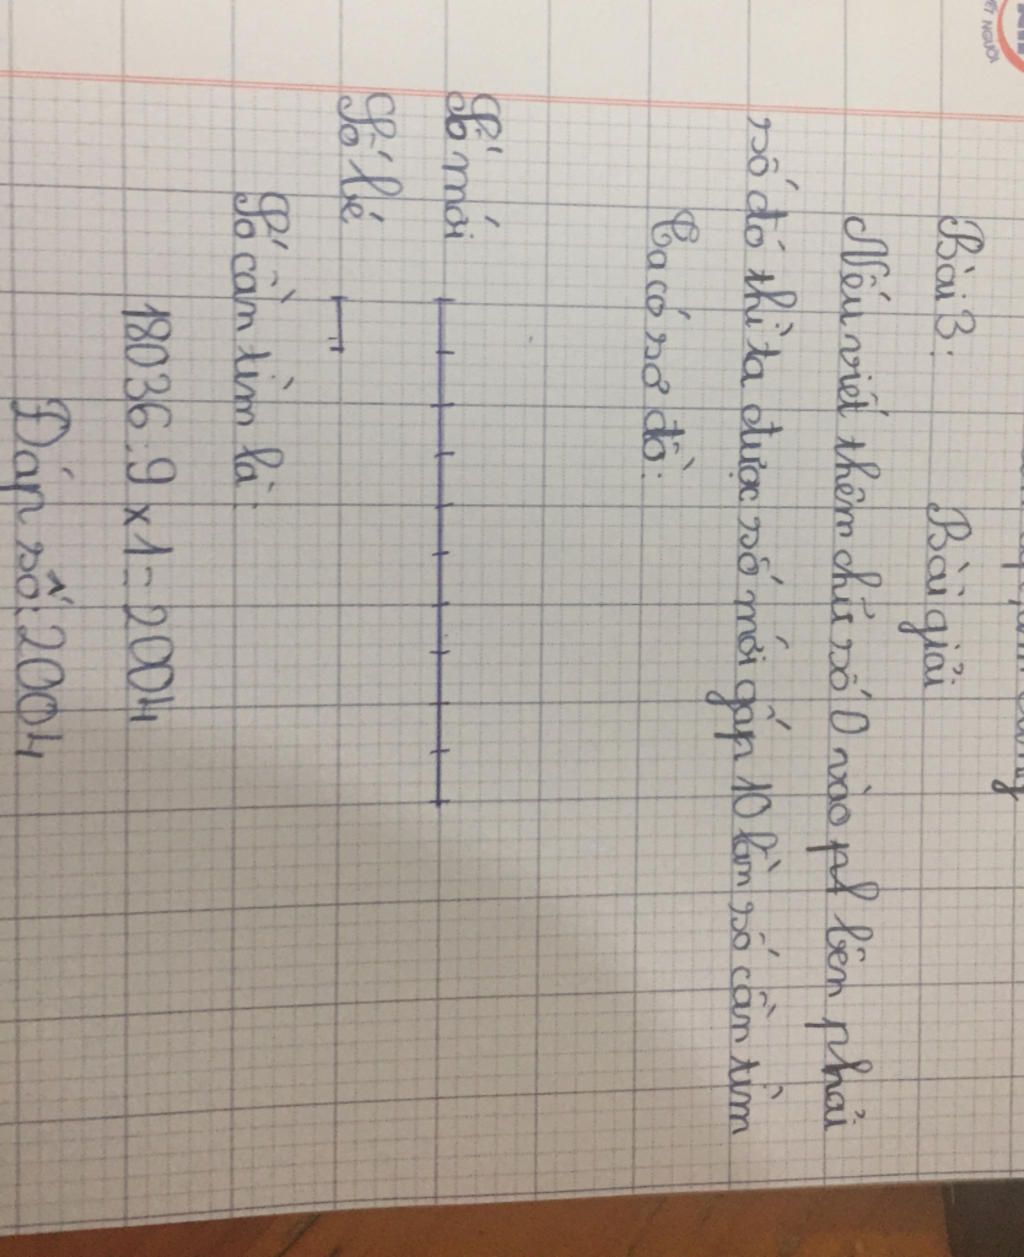 ẾT NGƯỜI
Bài 3:
Bài giải
Nếu viết thêm chữ số 0 vào pl bên phải
số đó thì ta được số mới gấp 10 lần số cần tìm
Ta có sơ đồ:
Số mới
Số bé
Số cần tìm là:
18036:9 x 1 = 2004
Đáp số: 2004